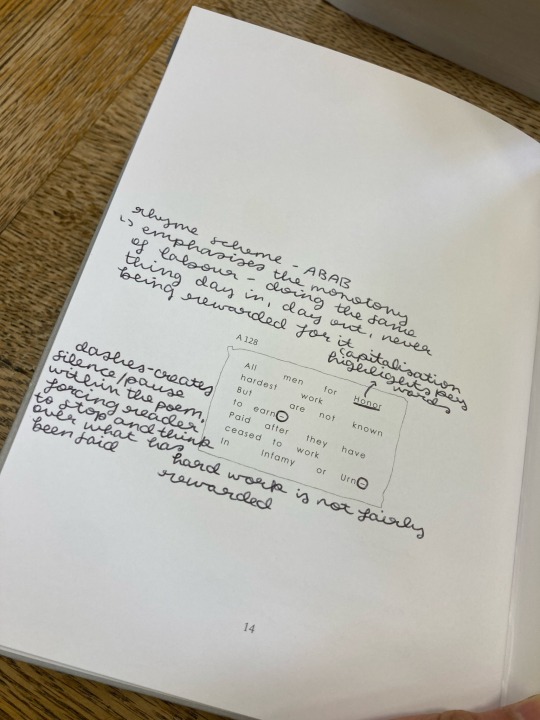 rhyme scheme - ABAB
↳ emphasises the monotony
of labour - doing the same
thing day in, day out, never
being rewarded for it
capitalisation
highlights key
words
dashes-creates
silence/pause
within the poem,
forcing reader
to stop and think
over what has
been said
A 128
All men for Honor
hardest work
But are not known
to earn–
Paid after they have
ceased to work
In Infamy or Urn–
hard work is not fairly
rewarded
14